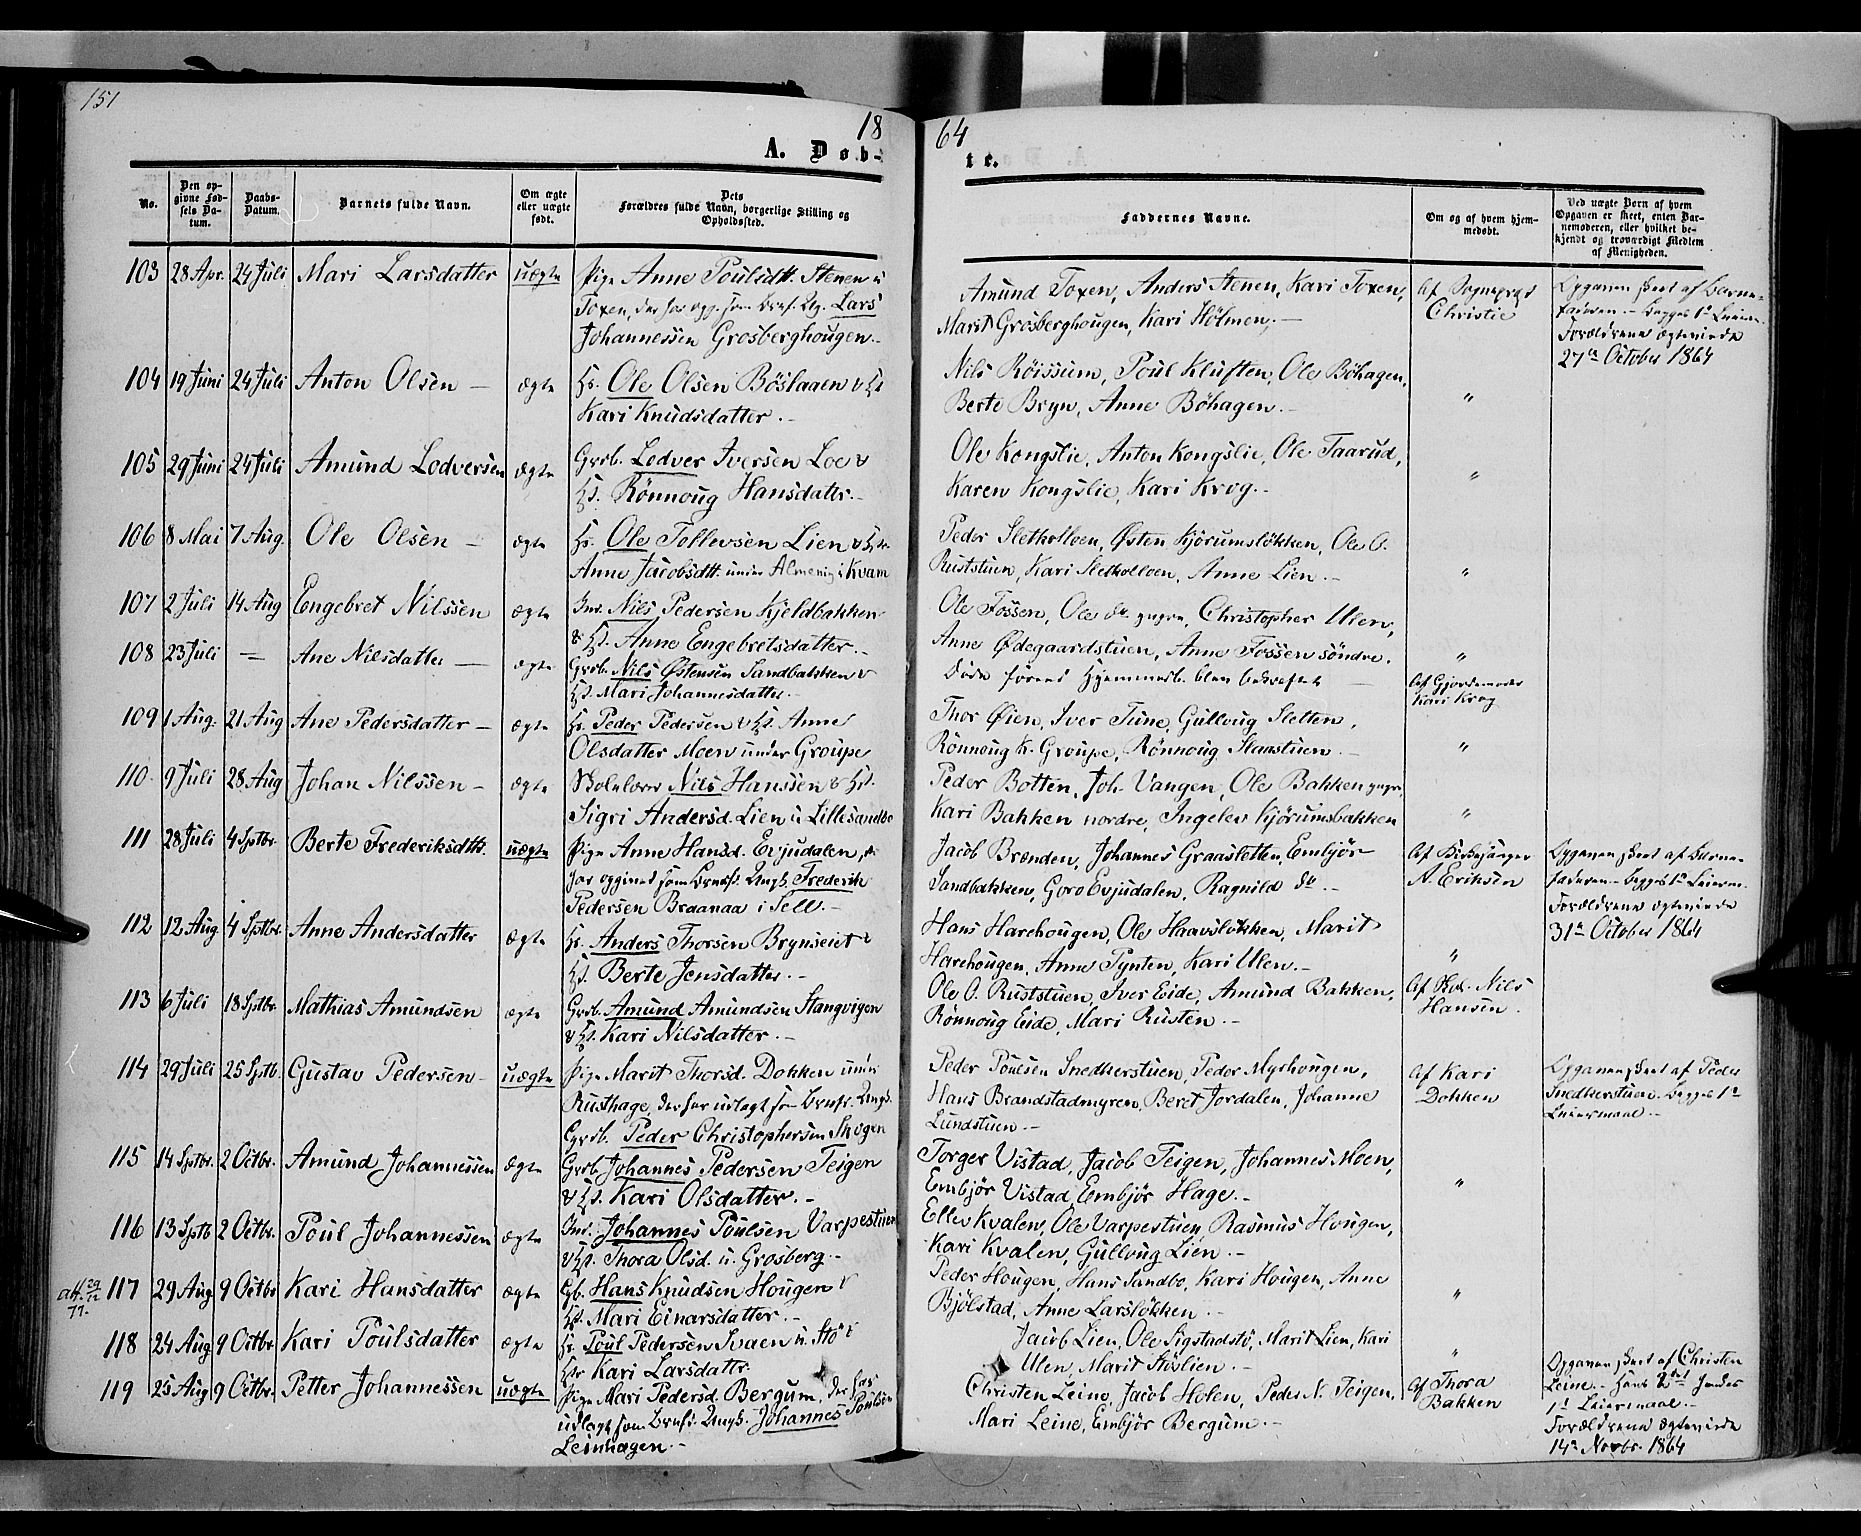 151
18
64
A. Døb-
te.
No.
Den op-
givne Fød-
sels Da-
tum.
Daabs-
Datum.
Barnets fulde Navn.
Om ægte
eller uægte
født.
Dets
Forældres fulde Navn, borgerlige Stilling og
Opholdssted.
Faddernes Navne.
Om og af hvem hjem-
medøbt.
Ved uægte Børn af hvem
Opgaven er skeet, enten Bar-
nemoderen, eller hvilket be-
kjendt og troværdigt Medlem
af Menigheden.
103 28 Apr. 24 Juli Mari Larsdatter uægte Pige Anne Poulsdtt. Stenen u
Toxen, der har opg. som Brnf. Ug. Lars
Johannessen Grosberghougen.-
Amund Toxen, Anders Stenen, Kari Toxen,
Marit Grosberghougen, Kari Holmen.-
Af Sognepræst
Christie
Opgaven skeet af Barne-
faderen.- Begges 1ste Leierm.
Forældrene ægteviede
27de October 1864
104 19 Juni 24 Juli Anton Olsen - ægte Hr. Ole Olsen Böslaaen & Hst
Kari Knudsdatter.-
Nils Röissum, Poul Kluften, Ole Böhagen,
Berte Bryn, Anne Böhagen.-
"
105 29 Juni 24 Juli Amund Lodversen ægte Grb. Lodver Iversen Loe &
Hst. Rönnoug Hansdatter.-
Ole Kongslie, Anton Kongslie, Ole Taarud,
Karen Kongslie, Kari Krog.-
"
106 8 Mai 7 Aug. Ole Olsen - ægte Hr. Ole Tollevsen Lien & Hst
Anne Jacobsdtt. under Almenig i Kvam
Peder Sletholloen, Østen Kjörumslökken, Ole O.
Ruststuen, Kari Sletholloen, Anne Lien.-
"
107 2 Juli 14 Aug Engebret Nilssen ægte Inr. Nils Pedersen Kjeldbakken
& Hst. Anne Engebretsdatter.-
Ole Fossen, Ole do yngre, Christopher Ulen,
Anne Ødegaardstuen, Anne Fossen söndre.
"
108 23 Juli - Ane Nilsdatter - ægte Grb. Nils Østensen Sandbakken &
Hst. Mari Johannesdatter.-
Döde förend Hjemmedb. blev bekræftet -
Af Gjordemoder
Kari Krog
109 1 Aug. 21 Aug Ane Pedersdatter - ægte Hr. Peder Pedersen & Hst. Anne
Olsdatter Moen under Groupe
Thor Øien, Iver Tune, Gulloug Sletten,
Rönnoug K. Groupe, Rönnoug Slaastuen.-
"
110. 9 Juli 28 Aug Johan Nilssen - ægte Skolelærer Nils Hanssen & Hst.
Sigri Andersd. Lien u Lillesandbo
Peder Botten, Joh. Vangen, Ole Bakken yngre,
Kari Bakken nordre, Ingeleu Kjörumsbakken
"
111 28 Juli 4 Septbr. Berte Frederiksdtt. uægte Pige Anne Hansd. Evjudalen,
har opgivet som Brnef. Ungk. Frederik
Pedersen Braanaa i Sell.-
Jacob Brænden, Johannes Graasletten, Embjör
Sandbakken, Goro Evjudalen, Ragnild do.-
Af Kirkesanger
A. Eriksen
Opgaven skeet af Barne-
faderen.- Begges 1ste Leierm.
Forældrene ægteviede
31te October 1864
112 12 Aug 4 Septbr. Anne Andersdatter ægte Hr. Anders Thorsen Brynseiet &
Hst. Berte Jensdatter.-
Hans Harehougen, Ole Haavslökken, Marit
Harehougen, Anne Pynten, Kari Ulen.-
"
113 6 Juli 18 Septbr. Mathias Amundsen ægte Grb. Amund Amundsen Stangvigen
& Hst. Kari Nilsdatter.-
Ole O. Ruststuen, Iver Eide, Amund Bakken,
Rönnoug Eide, Mari Rusten.-
Af Skol. Nils
Hansen.
114 29 Juli 25 Septb. Gustav Pedersen - uægte Pige Marit Thorsd. Dokken under
Rusthage, der har udlagt som Brnef. Ungk.
Grb. Peder Christophersen Skogen
Peder Poulsen Snedkerstuen, Peder Myrhougen,
Hans Brandstadmyren, Beret Jordalen, Johanne
Lundstuen.-
Af Kari
Dokken
Opgaven skeet af Peder
Snedkerstuen. Begges 1ste
Leiermaal.-
115 14 Septbr. 2 Octbr. Amund Johannessen ægte Grb. Johannes Pedersen Teigen
& Hst. Kari Olsdatter.-
Torger Vistad, Jacob Teigen, Johannes Moen,
Embjör Vistad, Embjör Hage.-
"
116 13 Septb 2 Octbr. Poul Johannessen ægte Inr. Johannes Poulsen Varpestuen
& Hst. Thora Olsd. u. Grosberg.-
Ellev Kvalen, Ole Varpestuen, Rasmus Hougen,
Kari Kvalen, Gulloug Lien.-
att. 29/12 77.
117 29 Aug 9 Octbr Kari Hansdatter ægte Gb. Hans Knudsen Hougen &
Hst. Mari Einarsdatter.-
Peder Hougen, Hans Sandbo, Kari Hougen, Anne
Bjölstad, Anne Larslökken.-
"
118 24 Aug 9 Octbr. Kari Poulsdatter ægte Hr. Poul Pedersen Svaen u. Stö &
Hst Kari Larsdattr.
Jacob Lien, Ole Sigstadstö, Marit Lien, Kari
Ulen, Marit Stölien.-
"
119 25 Aug 9 Octbr. Petter Johannessen uægte Pige Mari Pedersd. Bergum, der har
udlagt som Brnf. Ungk. Johannes Poulsen
Leinhagen.-
Christen Leine, Jacob Holen, Peder N. Teigen,
Mari Leine, Embjör Bergum.-
Af Thora
Bakken
Opgaven skeet af Christen
Leine.- Hans 2det hendes
1ste Leiermaal.-
Forældrene ægteviede
14de Novbr. 1864